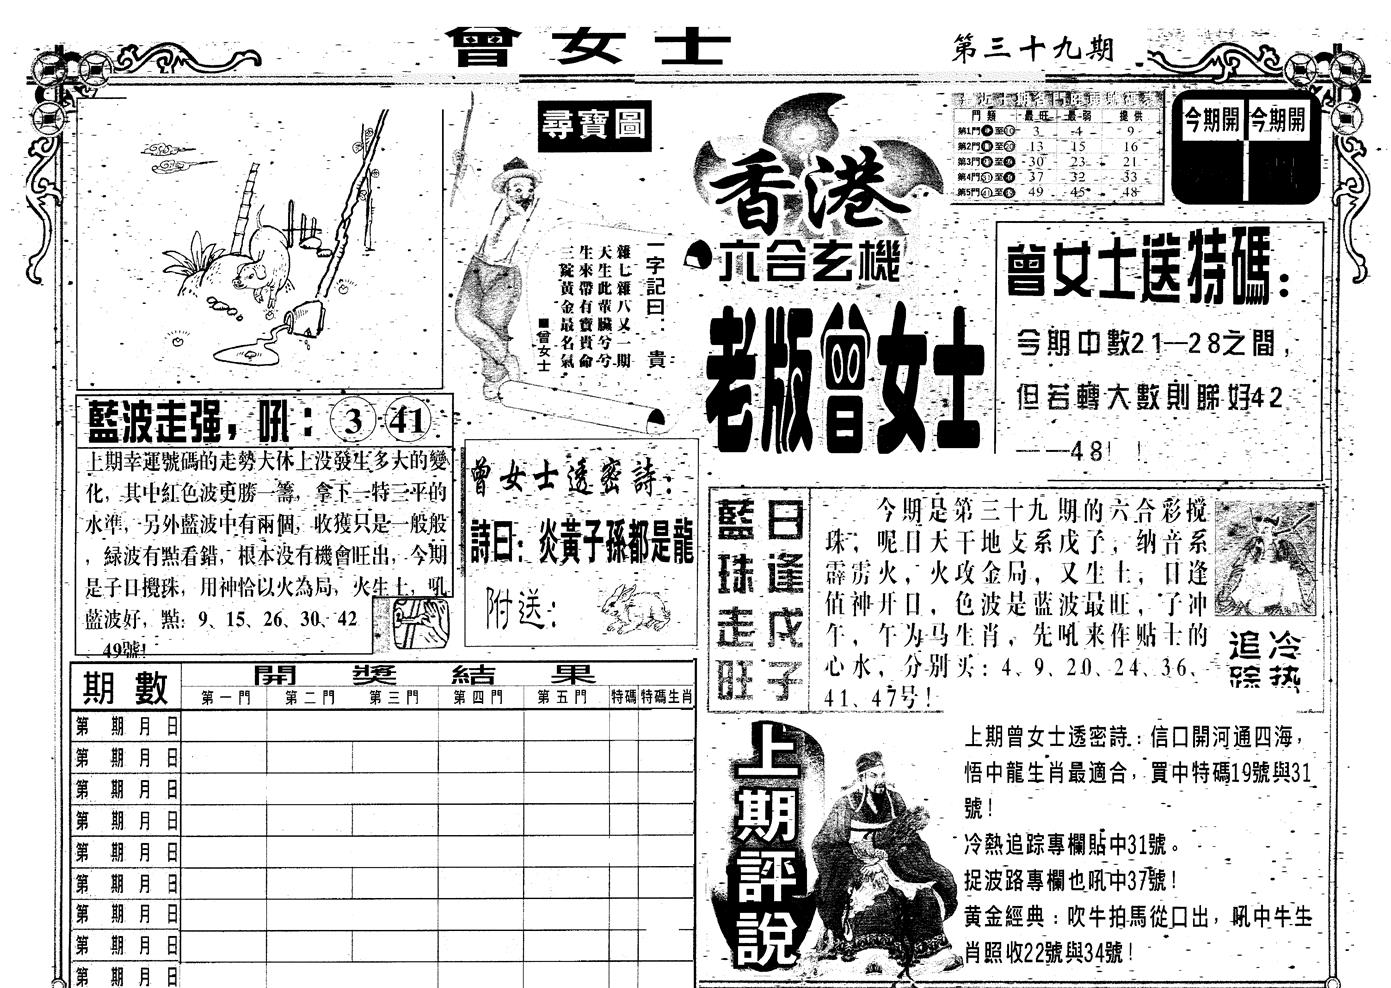 曾女士
第三十九期
尋寶圖
一字記曰：貴
雜七雜八又一期
天生此葷臟兮兮
生來帶有寶貴命
三錠黃金最名氣
■曾女士
香港
六合玄機
老版曾女士
門類 最旺 最弱 提供
第1門 至10 3 4 9
第2門 至 13 15 16
第3門 至 30 23 21
第4門31至 37 32 33
第5門41至 49 45 48
今期開 今期開
曾女士送特碼：
今期中數21—28之間，
但若轉大數則睇好42
——48！！
藍波走强，吼：3 41
上期幸運號碼的走勢大体上没發生多大的變
化，其中紅色波更勝一籌，拿下一特三平的
水準，另外藍波中有兩個，收獲只是一般般
，緑波有點看錯，根本没有機會旺出，今期
是子日攪珠，用神恰以火為局，火生土，吼
藍波好，點：9、15、26、30、42
、49號！
曾女士透密詩：
詩曰：炎黃子孫都是龍
附送：
藍珠走旺
日逢戊子
今期是第三十九期的六合彩搅
珠，呢日天干地支系戊子，纳音系
霹雳火，火攻金局，又生土，日逢
值神开日，色波是蓝波最旺，子冲
午，午为马生肖，先吼来作贴士的
心水，分别买：4、9、20、24、36、
41、47号！
追踪
冷热
期數
開獎結果
第一門 第二門 第三門 第四門 第五門 特碼 特碼生肖
第 期 月 日
第 期 月 日
第 期 月 日
第 期 月 日
第 期 月 日
第 期 月 日
第 期 月 日
第 期 月 日
第 期 月 日
上期評說
上期曾女士透密詩：信口開河通四海，
悟中龍生肖最適合，買中特碼19號與31
號！
冷熱追踪專欄貼中31號。
捉波路專欄也吼中37號！
黃金經典：吹牛拍馬從口出，吼中牛生
肖照收22號與34號！